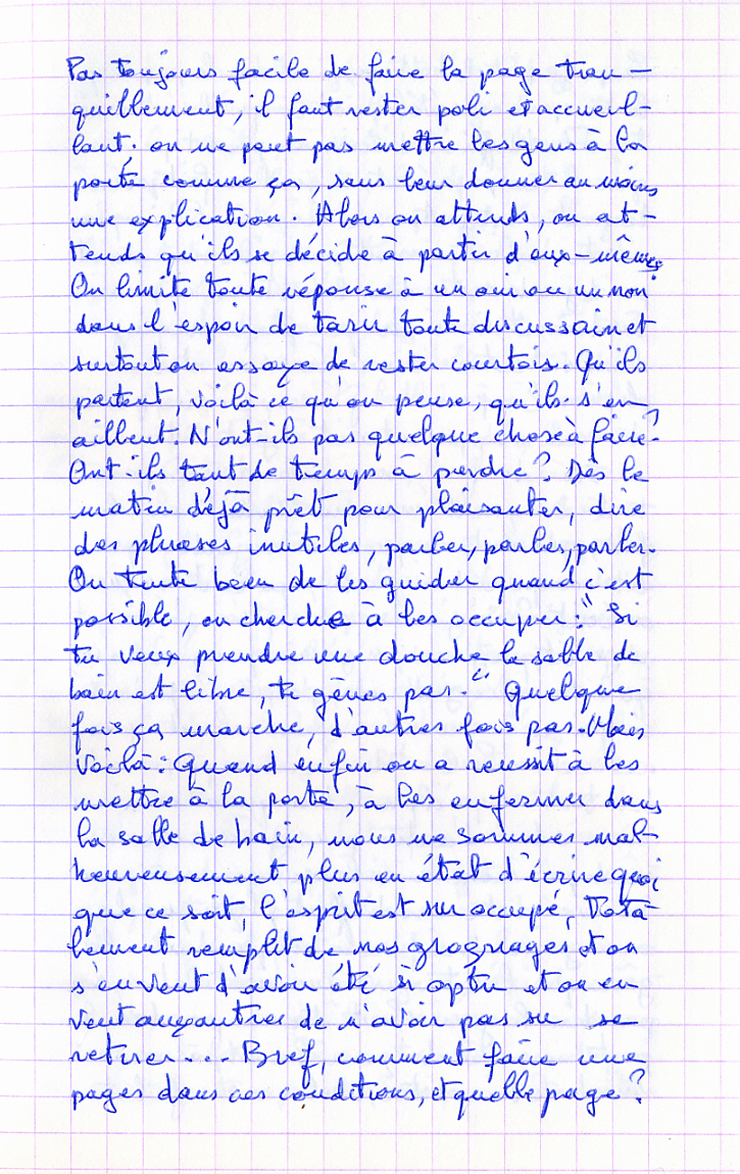 Pas toujours facile de faire la page tran-
quillement, il faut rester poli et accueil-
lant. on ne peut pas mettre les gens à la
porte comme ça, sans leur donner au moins
une explication. Alors on attends, on at-
tends qu'ils se décide à partir d'eux-mêmes.
On limite toute réponse à un oui ou un non
dans l'espoir de tarir toute discussain et
surtout on essaye de rester courtois. Qu'ils
partent, voilà ce qu'on pense, qu'ils s'en
aillent. N'ont-ils pas quelque chose à faire?
Ont-ils tant de temps à perdre? Dès le
matin déjà prêt pour plaisanter, dire
des phrases inutiles, parler, parler, parler.
On tente been de les guider quand c'est
possible, on cherche à les occuper: "Si
tu veux prendre une douche la salle de
bain est libre, te gênes pas." Quelque
fois ça marche, d'autres fois pas. Mais
voilà: Quand enfin on a reussit à les
mettre à la porte, à les enfermer dans
la salle de bain, nous ne sommes mal-
heureusement plus en état d'écrire quoi
que ce soit, l'esprit est sur occupé, Totа-
lement remplit de nos grognages et on
s'en veut d'avoir été si optu et on en
veut aux autres de n'avoir pas su se
retirer... Bref, comment faire une
pages dans ces conditions, et quelle page?